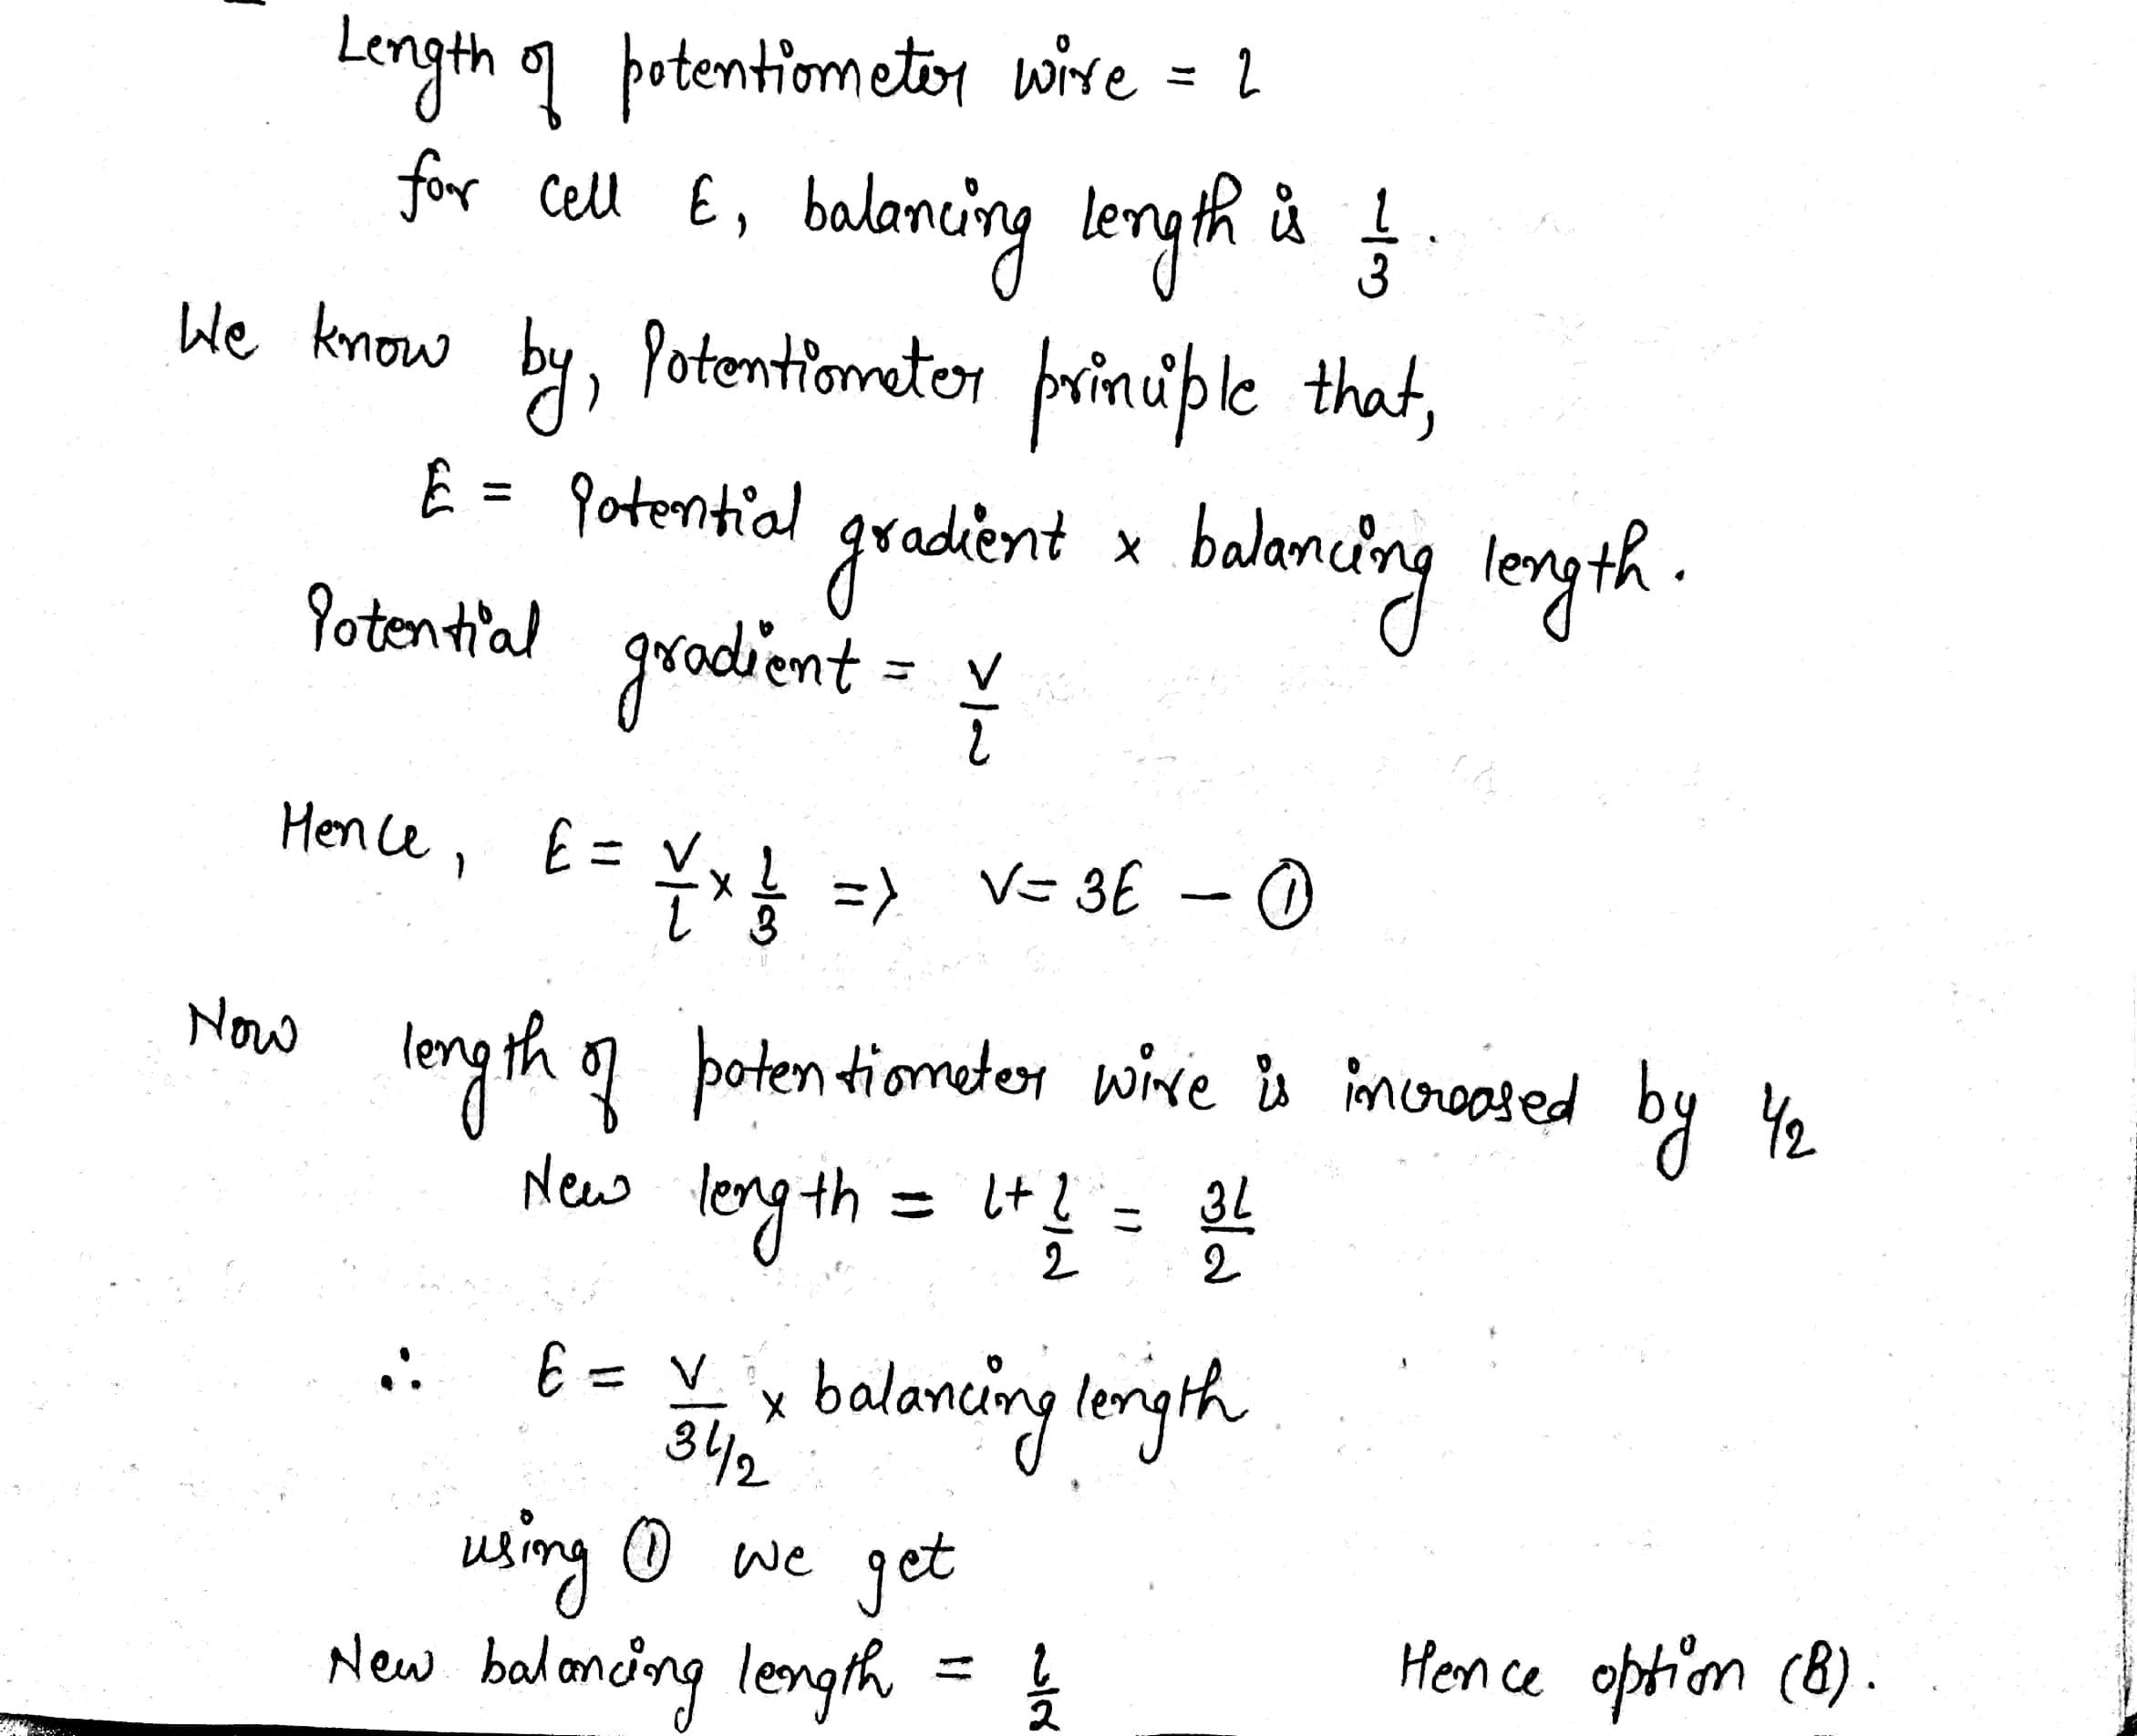 Length of potentiometer wire = l
for cell E, balancing length is l/3.
We know by, Potentiometer principle that,
E = Potential gradient x balancing length.
Potential gradient = V/l
Hence, E = V/l x l/3 => V = 3E - ①
Now length of potentiometer wire is increased by l/2
New length = l + l/2 = 3l/2
∴ E = V/(3l/2) x balancing length
using ① we get
New balancing length = l/2 Hence option (B).